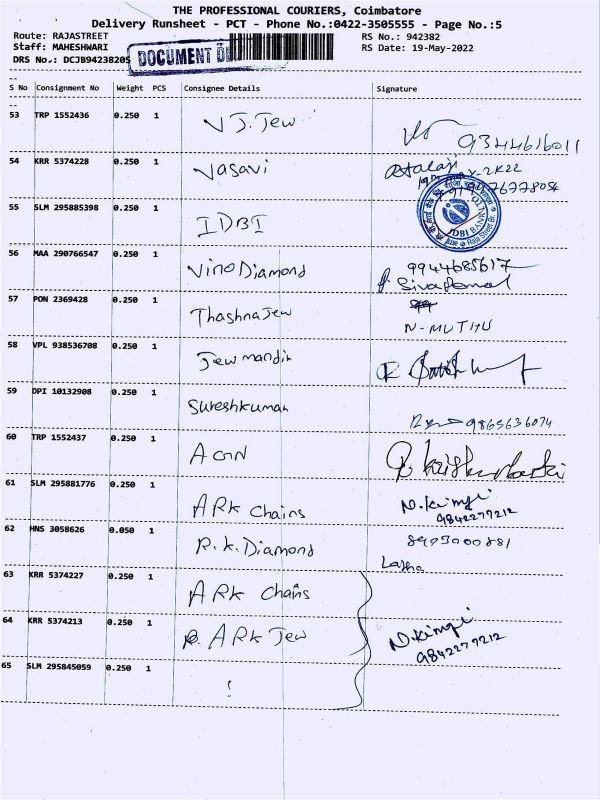 THE PROFESSIONAL COURIERS, Coimbatore
Delivery Runsheet - PCT - Phone No.:0422-3505555 - Page No.:5
Route: RAJASTREET RS No.: 942382
Staff: MAHESHWARI RS Date: 19-May-2022
DRS No.: DCJB9423820 DOCUMENT
S No Consignment No Weight PCS Consignee Details Signature
53 TRP 1552436 0.250 1 V J. Jew 9344616011
54 KRR 5374228 0.250 1 Vasavi
55 SLM 295885398 0.250 1 IDBI
IDBI BANK LTD
56 MAA 290766547 0.250 1 Vino Diamond 9944685617
57 PON 2369428 0.250 1 Thashna Jew
N-MUTHU
58 VPL 938536708 0.250 1 Jew mandir
59 DPI 10132908 0.250 1 Sureshkumar 9865636074
60 TRP 1552437 0.250 1 AGN
61 SLM 295881776 0.250 1 ARK Chains
9842277212
62 HNS 3058626 0.050 1 R.K. Diamond 8903000881
63 KRR 5374227 0.250 1 ARK Chains
64 KRR 5374213 0.250 1 ARK Jew
9842277212
65 SLM 295845059 0.250 1